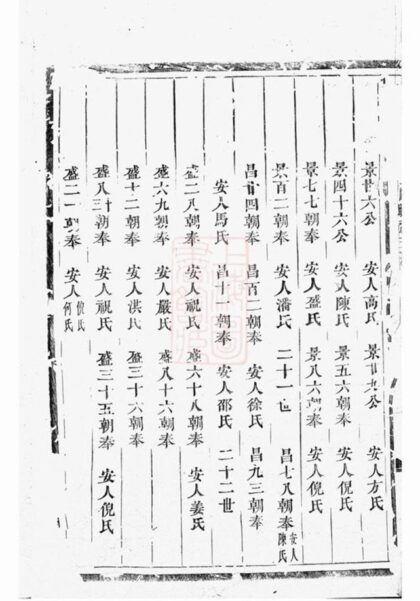 景廿六公 安人高氏 景廿九公 安人方氏
景四十六公 安人陳氏 景五六朝奉 安人倪氏
景七七朝奉 安人盛氏 景八六朝奉 安人倪氏
景百二朝奉 安人潘氏 二十一世 昌七八朝奉 安人陳氏
昌廿四朝奉 昌百二朝奉 安人徐氏 昌九三朝奉
安人馬氏 昌十一朝奉 安人邵氏 二十二世
盛二八朝奉 安人祝氏 盛六十八朝奉 安人姜氏
盛六九朝奉 安人嚴氏 盛八十六朝奉
盛十二朝奉 安人洪氏 盛三十六朝奉
盛八三朝奉 安人祝氏 盛三十五朝奉 安人倪氏
盛二一朝奉 安人倪氏何氏